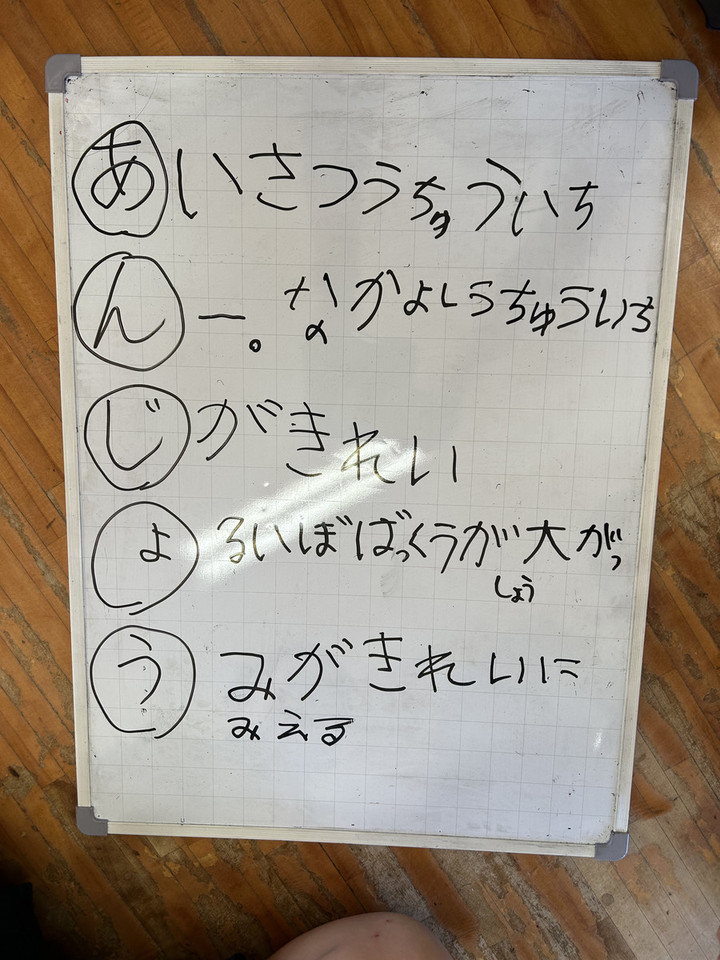 あいさつうちゅういち
んー。なかよしうちゅういち
じがきれい
よるいぼばっくうが大がっ
しょう
うみがきれいに
みえる